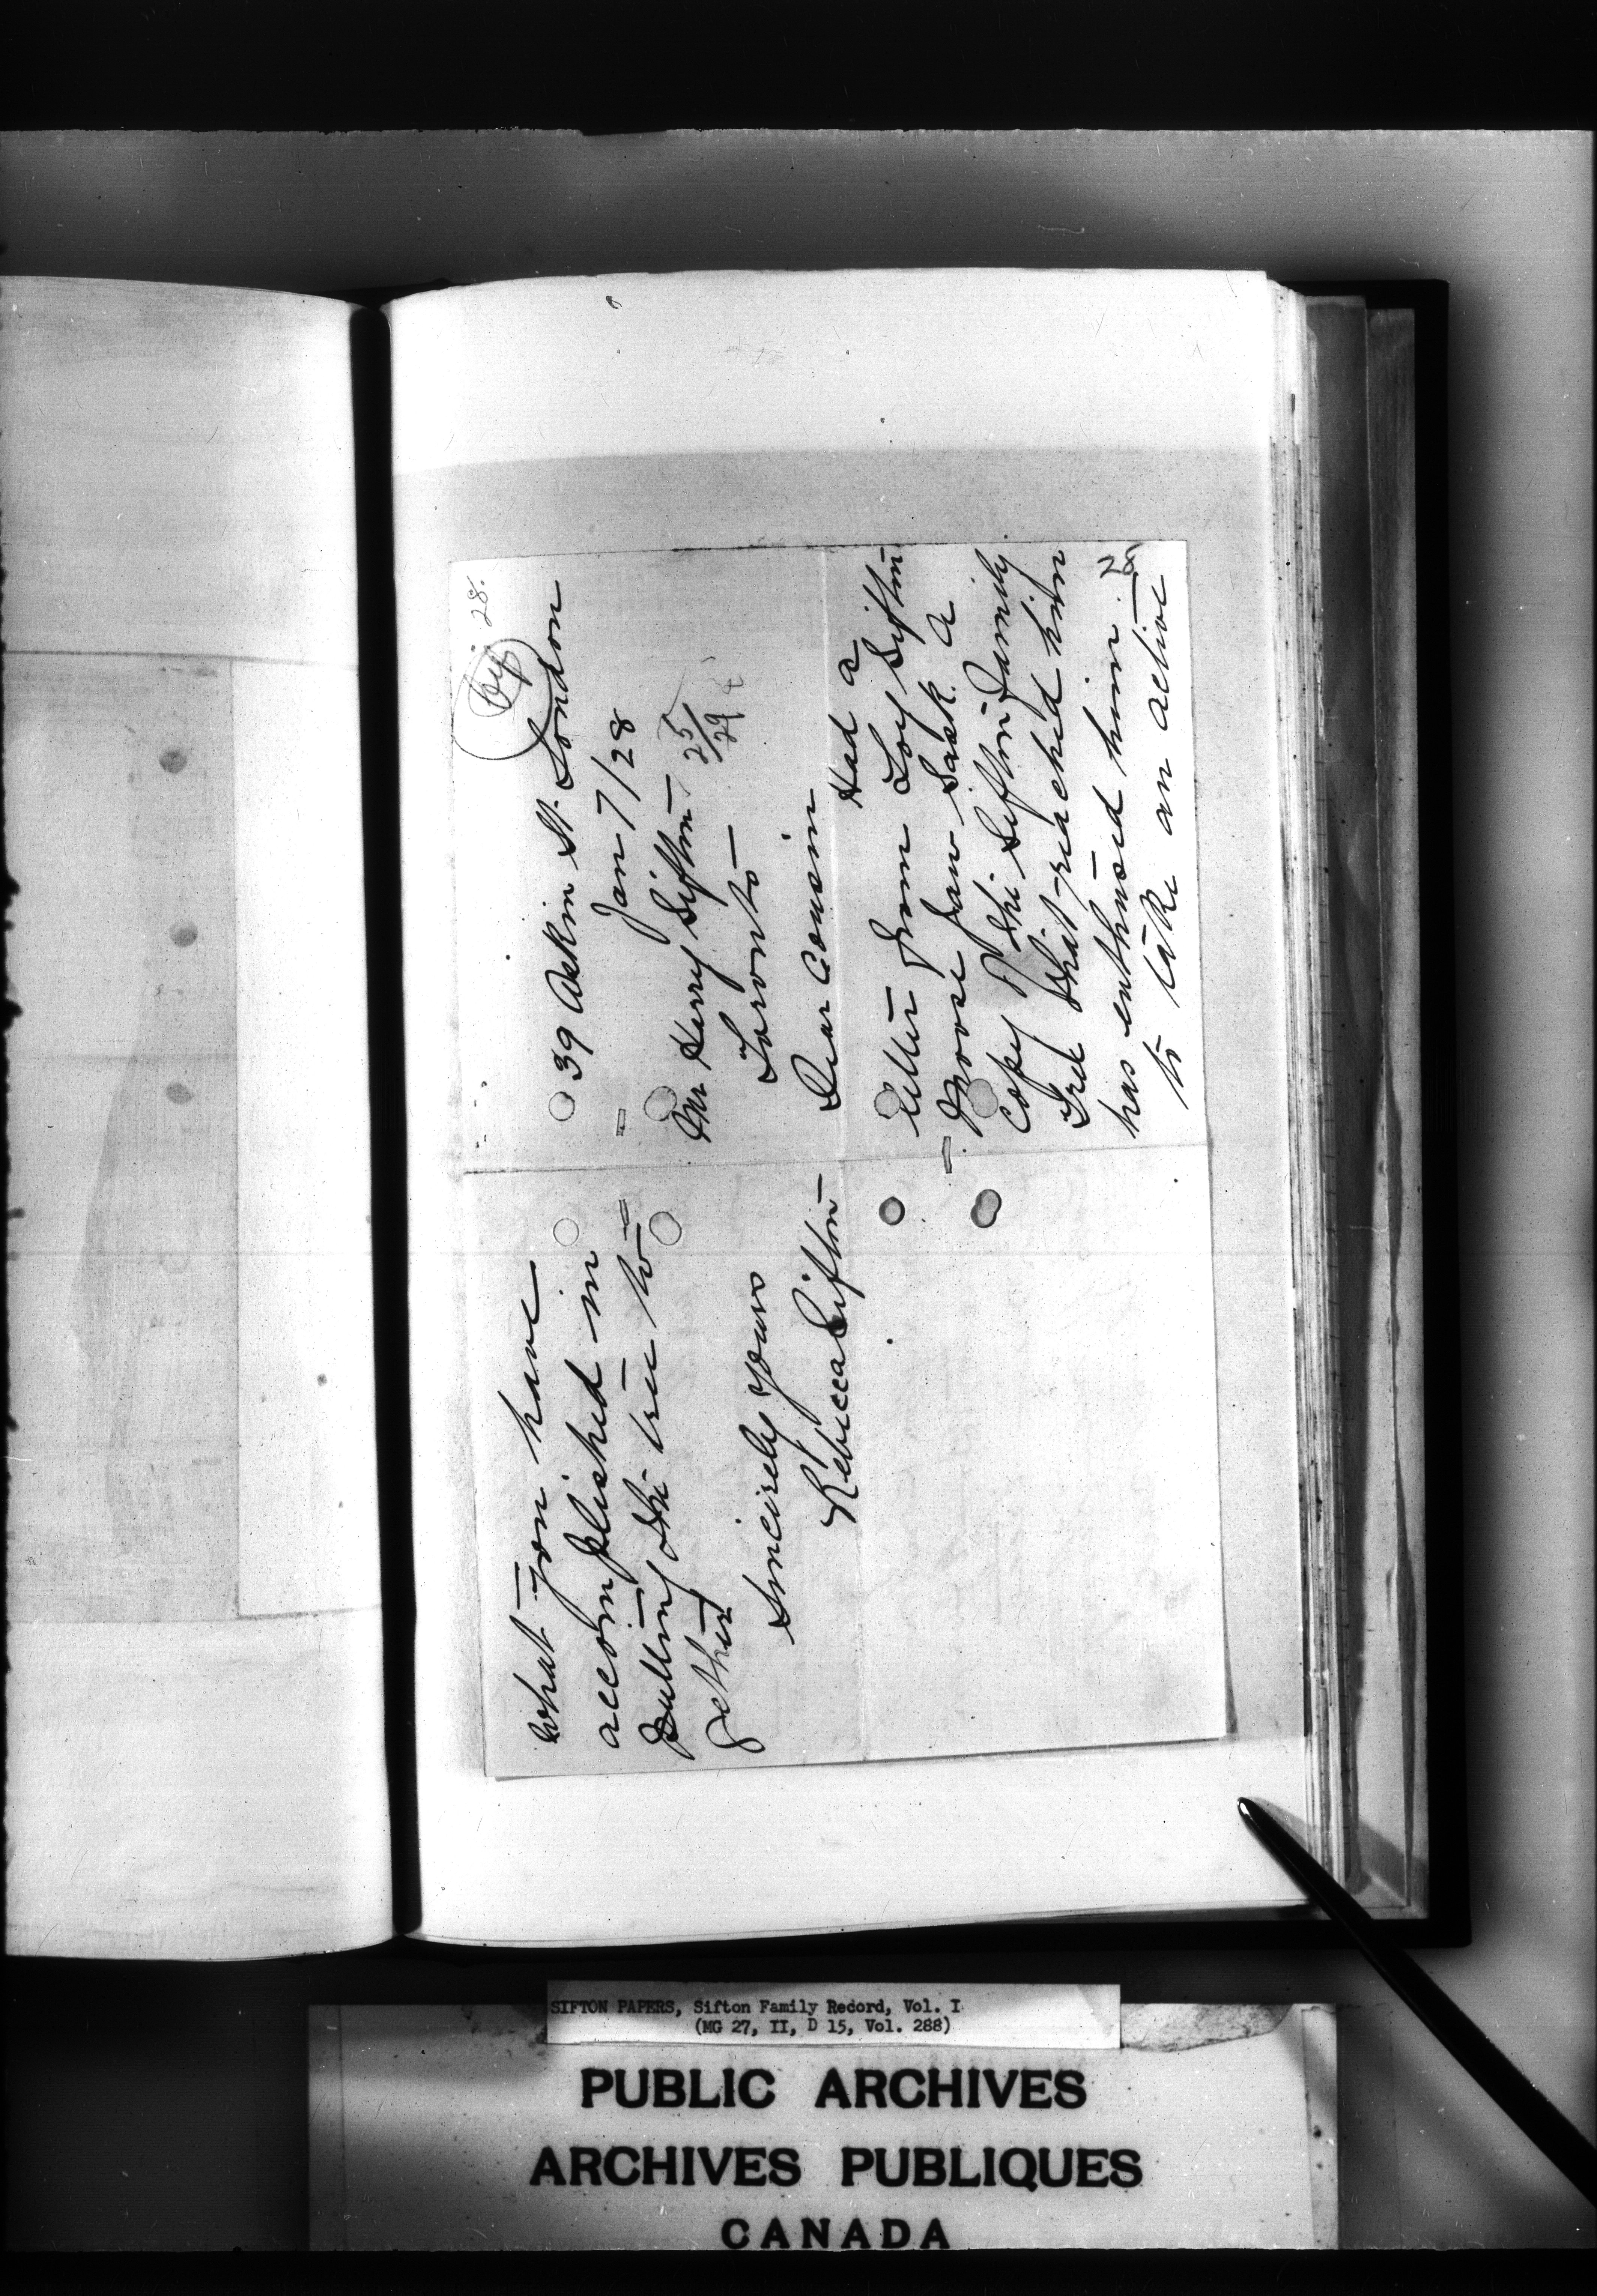 28.
39 Askin St. London
Jan 7/28
Mr Harry Sifton
25/29
Toronto
Dear Cousin
Had a
letter from Loy Sifton
Moose Jaw Sask. A
copy of the Sifton Family
Tree that reached him
has enthused him
28
to take an active
what you have
accomplished in
putting the tree to
gether
Sincerely yours
Rebecca Sifton
SIFTON PAPERS, Sifton Family Record, Vol. I
(MG 27, II, D 15, Vol. 288)
PUBLIC ARCHIVES
ARCHIVES PUBLIQUES
CANADA